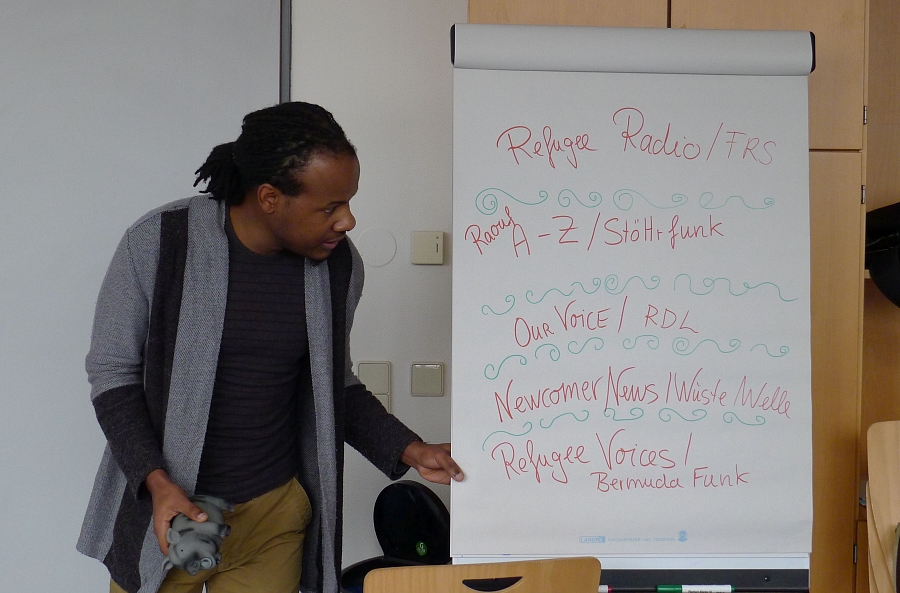 Refugee Radio / FRS
Raouf A - Z / Stöhrfunk
OUR VOICE / RDL
Newcomer News / Wüste Welle
Refugee Voices /
Bermuda Funk